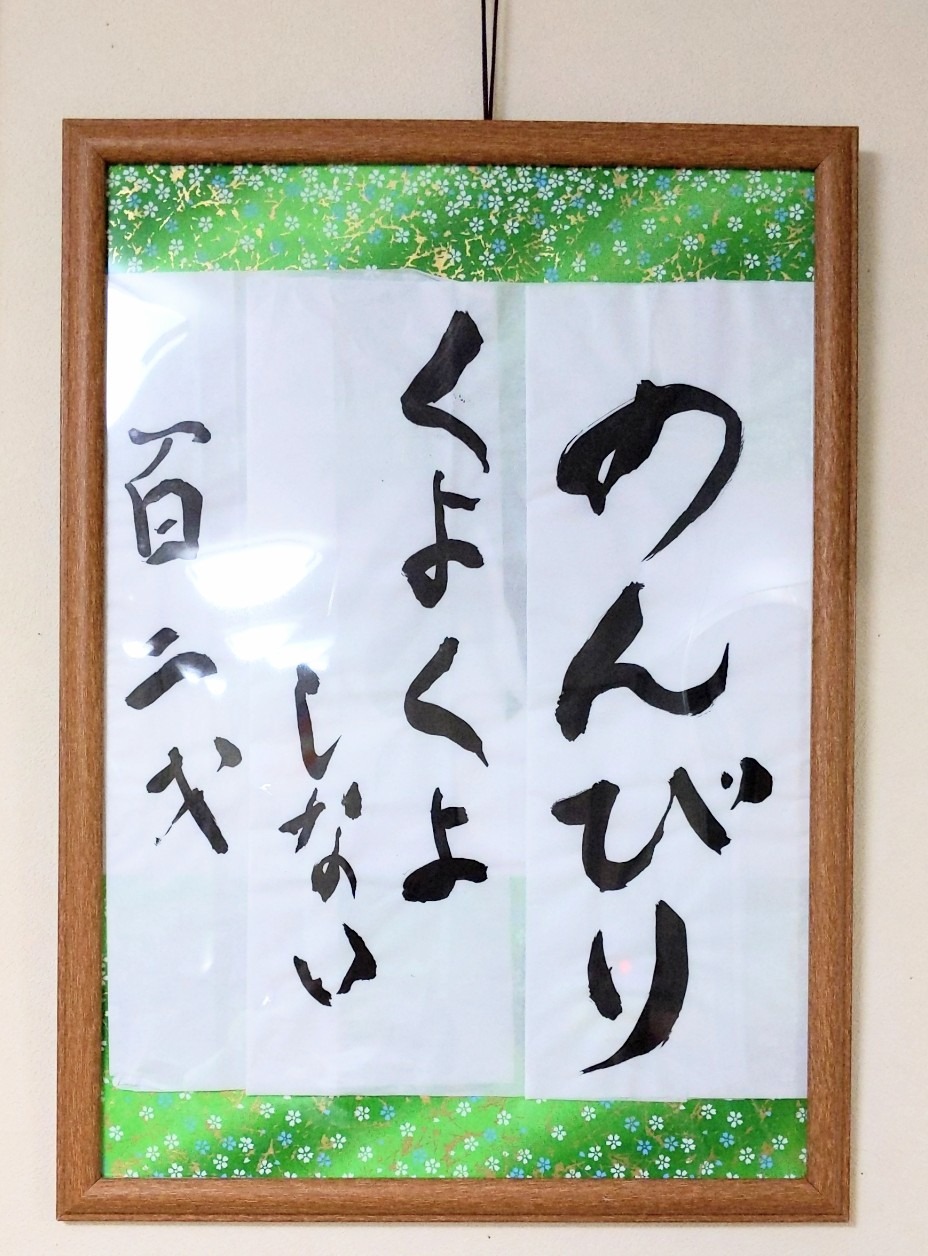 のんびり
くよくよ
しない
百二才